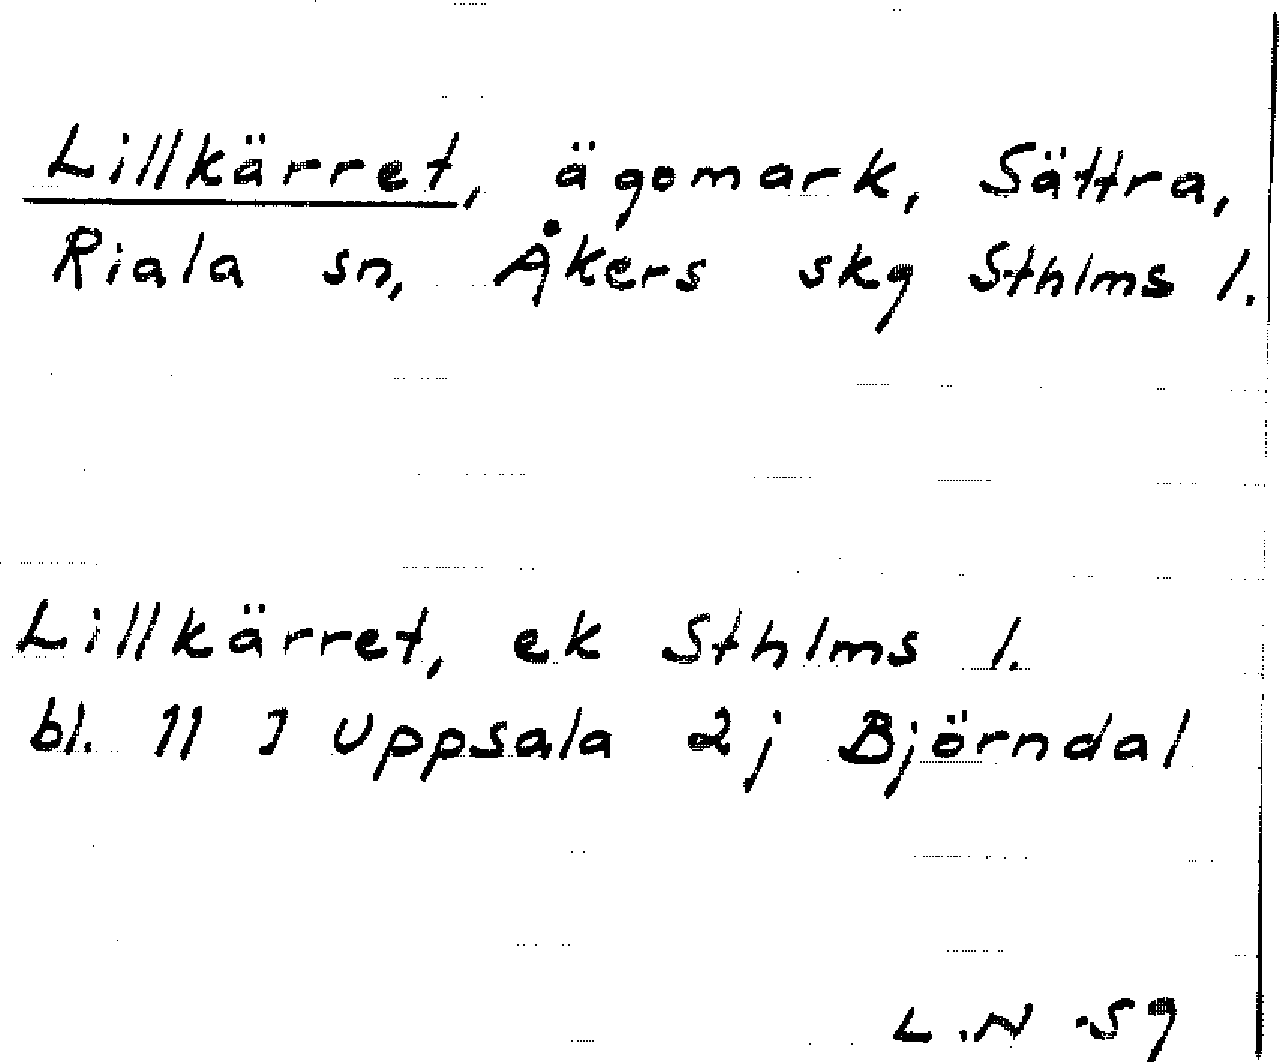 Lillkärret, ägomark, Sättra,
Riala sn, Åkers skg Sthlms l.
Lillkärret, ek Sthlms l.
bl. 11 I Uppsala 2j Björndal
L.N -59